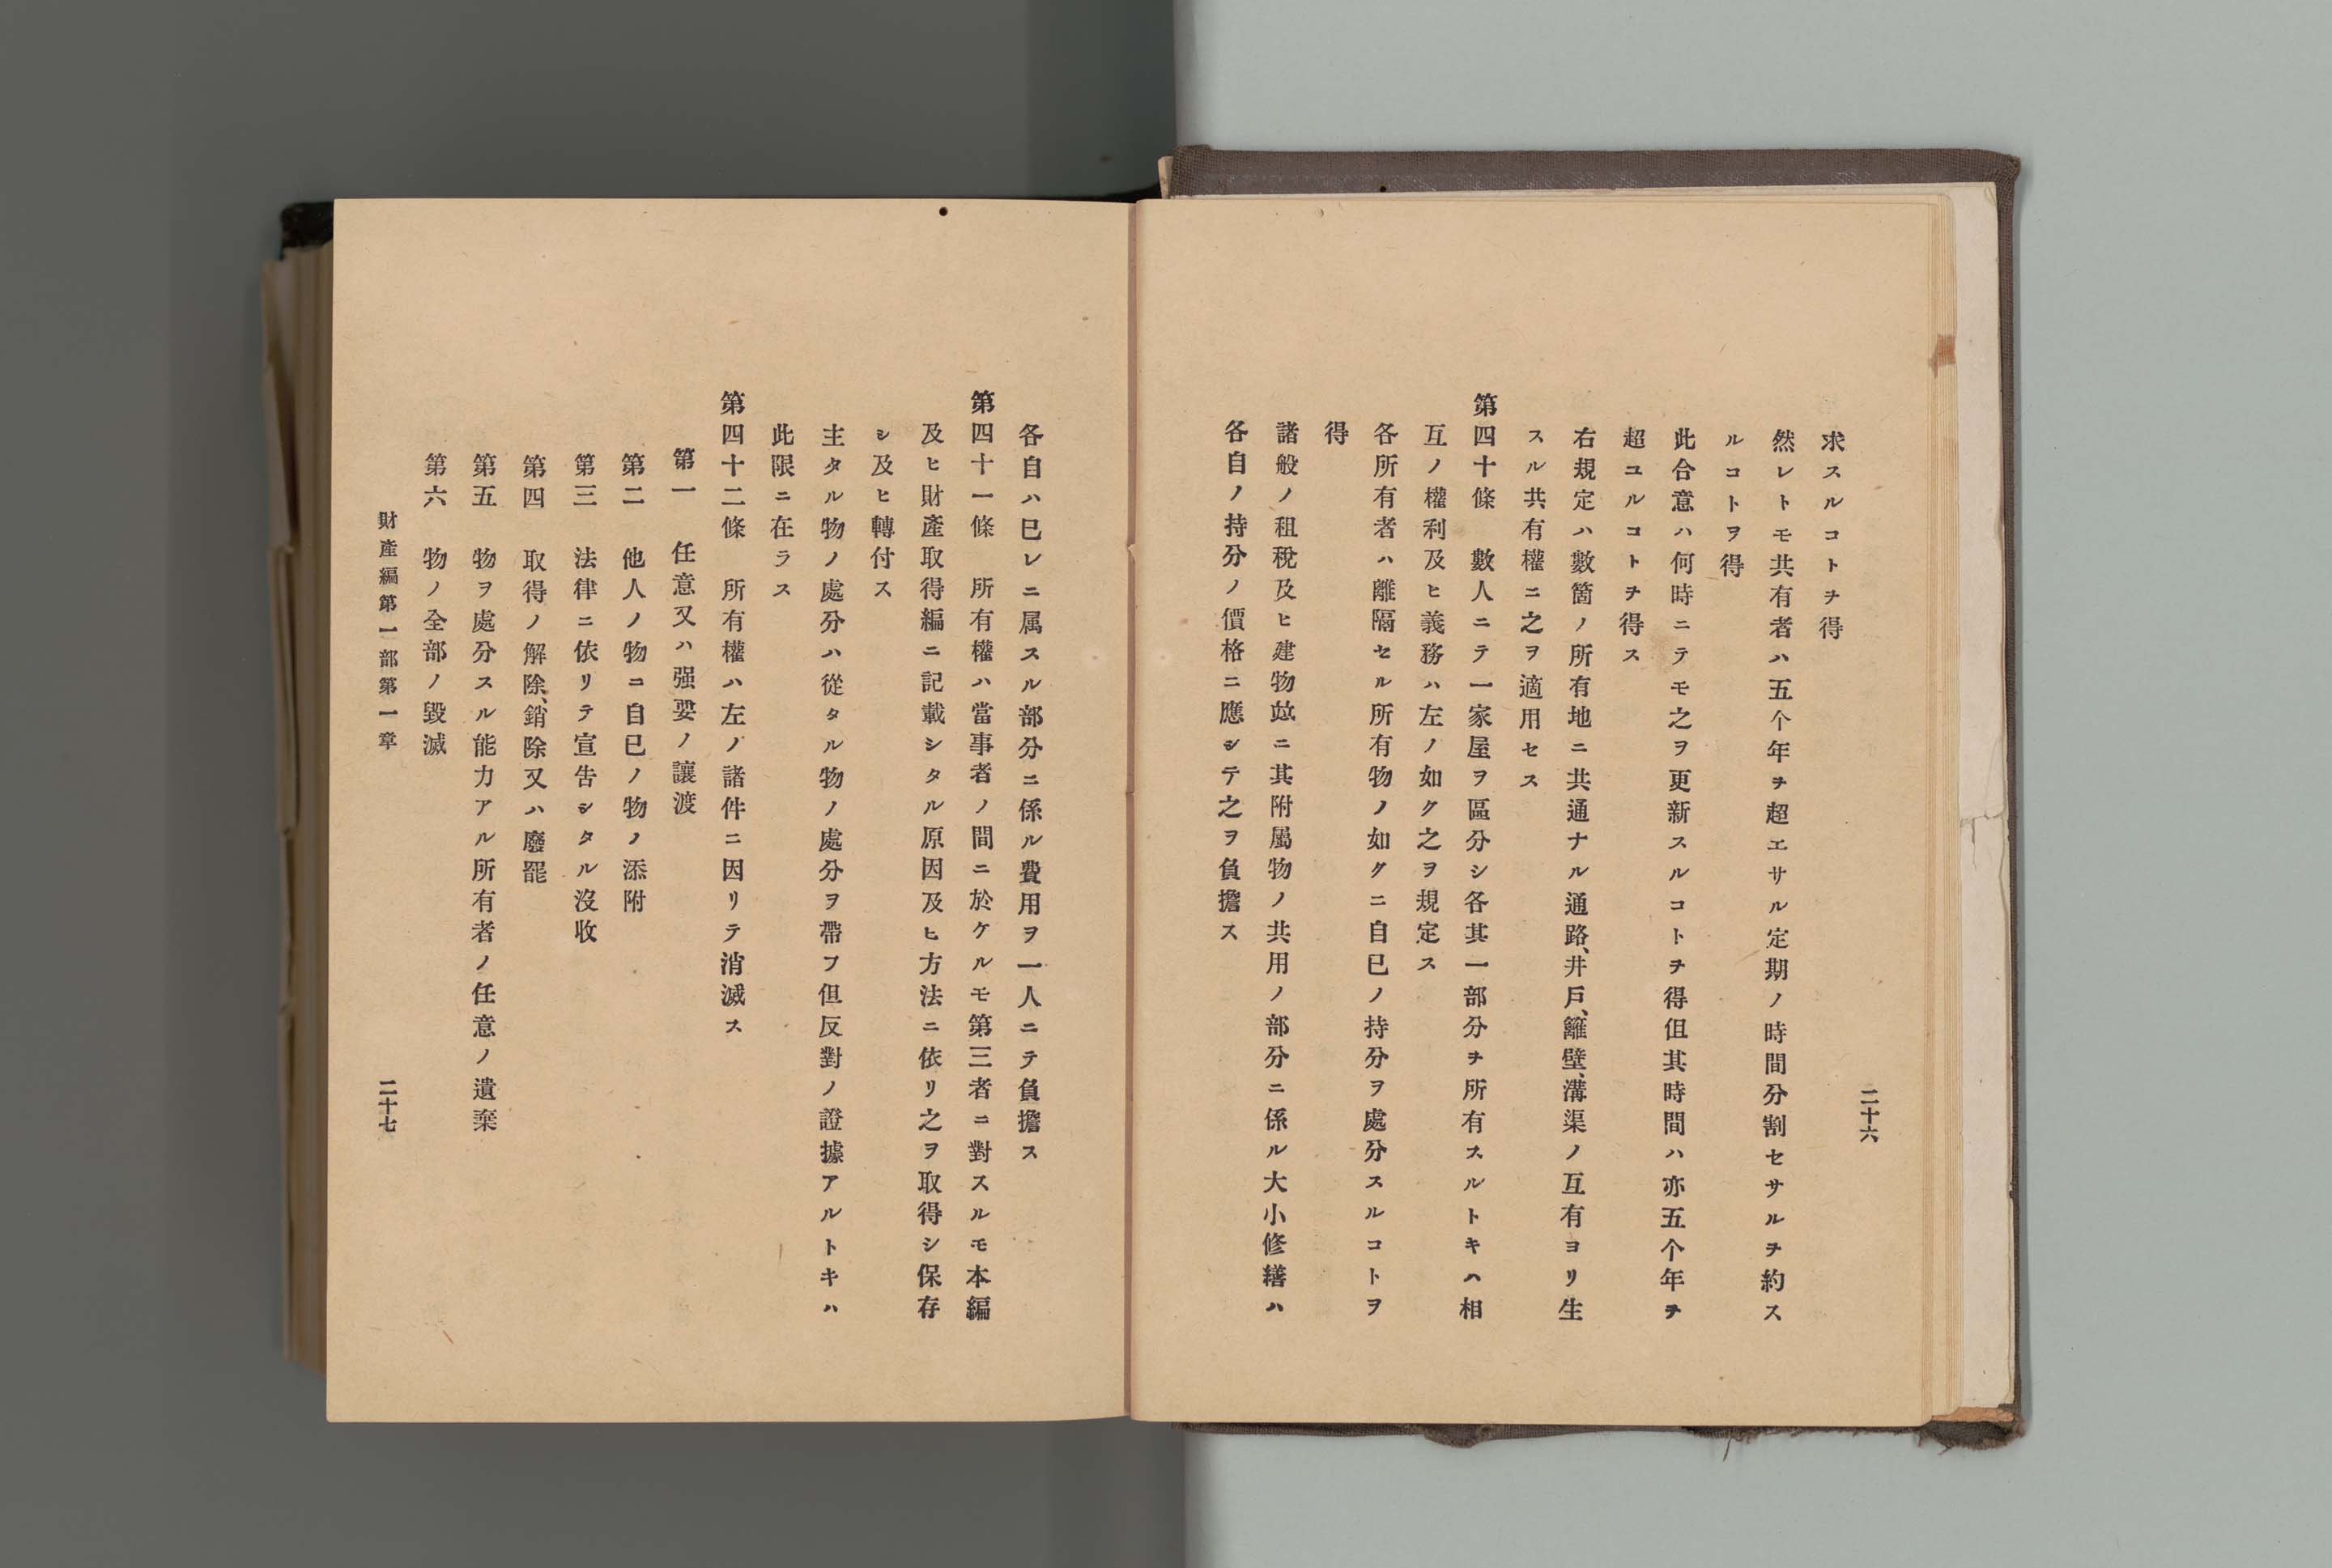 二十六
求スルコトヲ得
然レトモ共有者ハ五个年ヲ超エサル定期ノ時間分割セサルヲ約ス
ルコトヲ得
此合意ハ何時ニテモ之ヲ更新スルコトヲ得但其時間ハ亦五个年ヲ
超ユルコトヲ得ス
右規定ハ數箇ノ所有地ニ共通ナル通路、井戶、籬壁、溝渠ノ互有ヨリ生
スル共有權ニ之ヲ適用セス
第四十條 數人ニテ一家屋ヲ區分シ各其一部分ヲ所有スルトキハ相
互ノ權利及ヒ義務ハ左ノ如ク之ヲ規定ス
各所有者ハ離隔セル所有物ノ如クニ自已ノ持分ヲ處分スルコトヲ
得
諸般ノ租稅及ヒ建物竝ニ其附屬物ノ共用ノ部分ニ係ル大小修繕ハ
各自ノ持分ノ價格ニ應シテ之ヲ負擔ス
各自ハ已レニ属スル部分ニ係ル費用ヲ一人ニテ負擔ス
第四十一條 所有權ハ當事者ノ間ニ於ケルモ第三者ニ對スルモ本編
及ヒ財產取得編ニ記載シタル原因及ヒ方法ニ依リ之ヲ取得シ保存
シ及ヒ轉付ス
主タル物ノ處分ハ從タル物ノ處分ヲ帶フ但反對ノ證據アルトキハ
此限ニ在ラス
第四十二條 所有權ハ左ノ諸件ニ因リテ消滅ス
第一 任意又ハ强要ノ讓渡
第二 他人ノ物ニ自已ノ物ノ添附
第三 法律ニ依リテ宣告シタル沒收
第四 取得ノ解除、銷除又ハ廢罷
第五 物ヲ處分スル能力アル所有者ノ任意ノ遺棄
第六 物ノ全部ノ毀滅
財產編第一部第一章
二十七